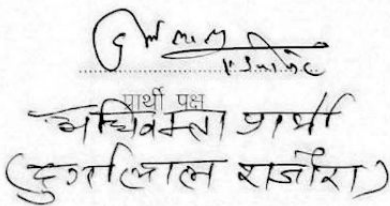 प्रार्थी पक्ष
अधिवक्ता प्रार्थी
(दुर्गालाल राजौरा)